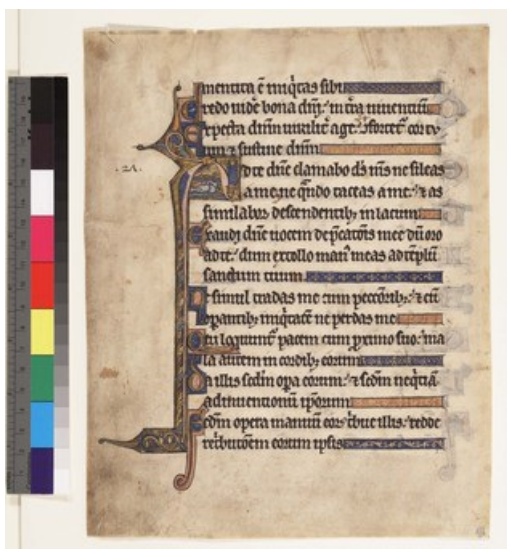 mentita ē iniq̇tas sibi
Credo uidē bona dñi. in t̄ra uiuentiū
Expecta dñm uirilit̄ age. ⁊ confortet̄ cor tv
um ⁊ sustine dñm
Ad te dñe clamabo d̄s m̄s ne sileas
a me. ne q̄ndo taceas a me. ⁊ as
similabor descendentib; in lacum
Exaudi dñe uocem dep̄catōis mee dū oro
ad te. dum extollo man᷒ meas ad tēplū
sanctum tuum
Ne simul tradas me cum peccōrib;. ⁊ cū
opantib; iniq̇tatē ne perdas me
Qui loqūnt᷒ pacem cum p̄ximo suo. ma
la autem in cordib; eorum
Da illis scd̄m opa eorum. ⁊ scd̄m neq̇tiā
adinuentionū ip̄orum
Scd̄m opera manuū eor᷒ t̄bue illis. redde
ret̄butōem eorum ipsis